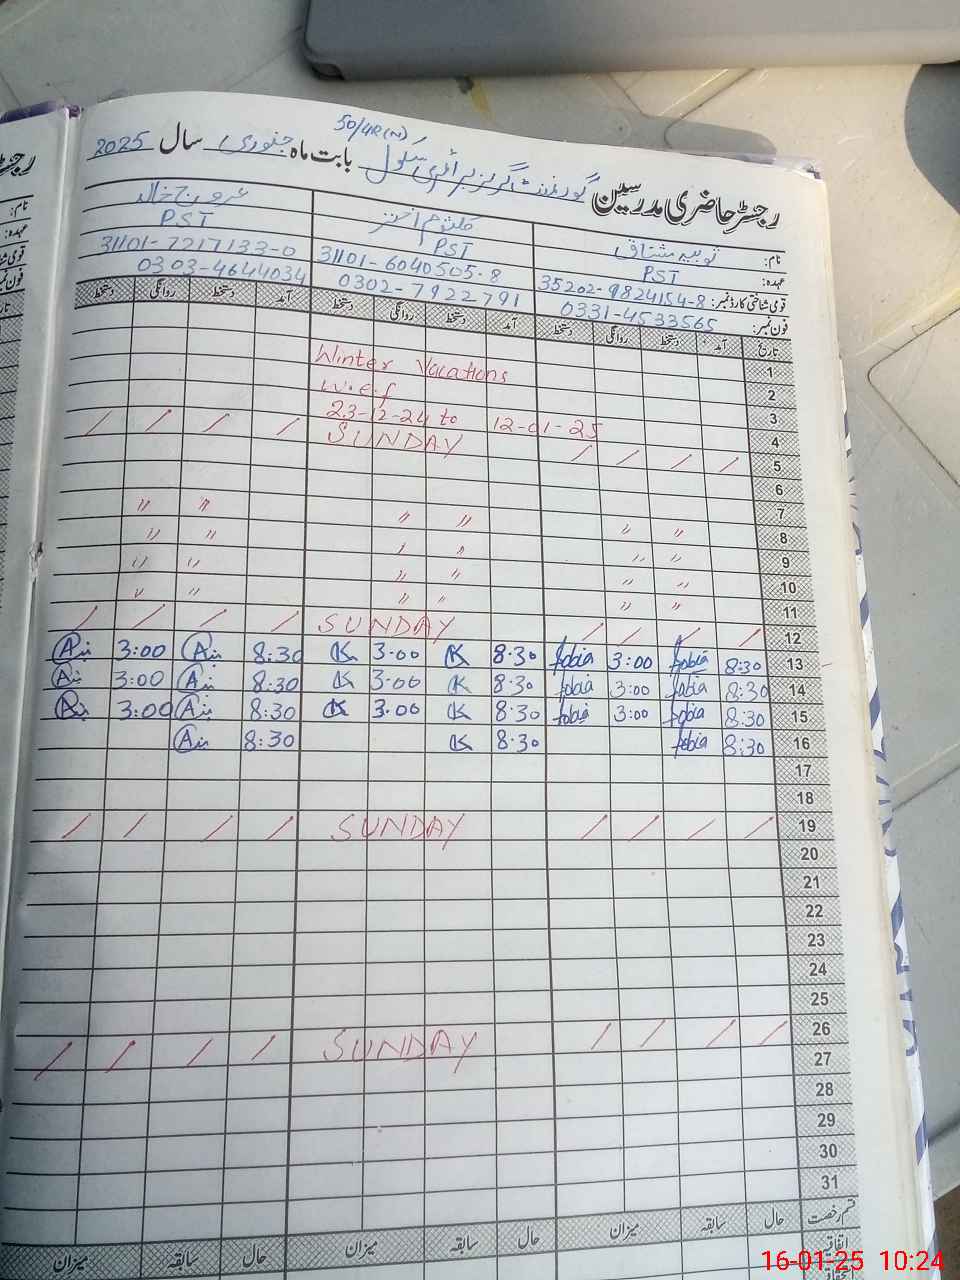 رجسٹر حاضری مدرسین گورنمنٹ گرلز پرائمری سکول 50/4R(N) بابت ماہ جنوری سال 2025
نام: ثوبیہ مشتاق کلثوم اختر عروج خالد
عہدہ: PST PST PST
قومی شناختی کارڈ نمبر: 35202-9824154-8 31101-6040505-8 31101-7217133-0
فون نمبر: 0331-4533565 0302-7922791 0303-4644034
تاریخ آمد دستخط روانگی دستخط آمد دستخط روانگی دستخط آمد دستخط روانگی دستخط
1 Winter Vacations
2 w.e.f
3 23-12-24 to 12-01-25
4
5 SUNDAY
6
7
8 〃 〃 〃 〃 〃 〃
9 〃 〃 〃 〃 〃 〃
10 〃 〃 〃 〃 〃 〃
11 〃 〃 〃 〃 〃 〃
12 SUNDAY
13 8:30 fobia 3:00 fobia 8.30 K 3.00 K 8:30 3:00
14 8:30 fobia 3:00 fobia 8.30 K 3.00 K 8:30 3:00
15 8:30 fobia 3:00 fobia 8.30 K 3.00 K 8:30 3:00
16 8:30 fobia 8.30 K 8:30
17
18
19 SUNDAY
20
21
22
23
24
25
26 SUNDAY
27
28
29
30
31
قسم رخصت حال سابقہ میزان حال سابقہ میزان حال سابقہ میزان
اتفاقیہ
16-01-25 10:24